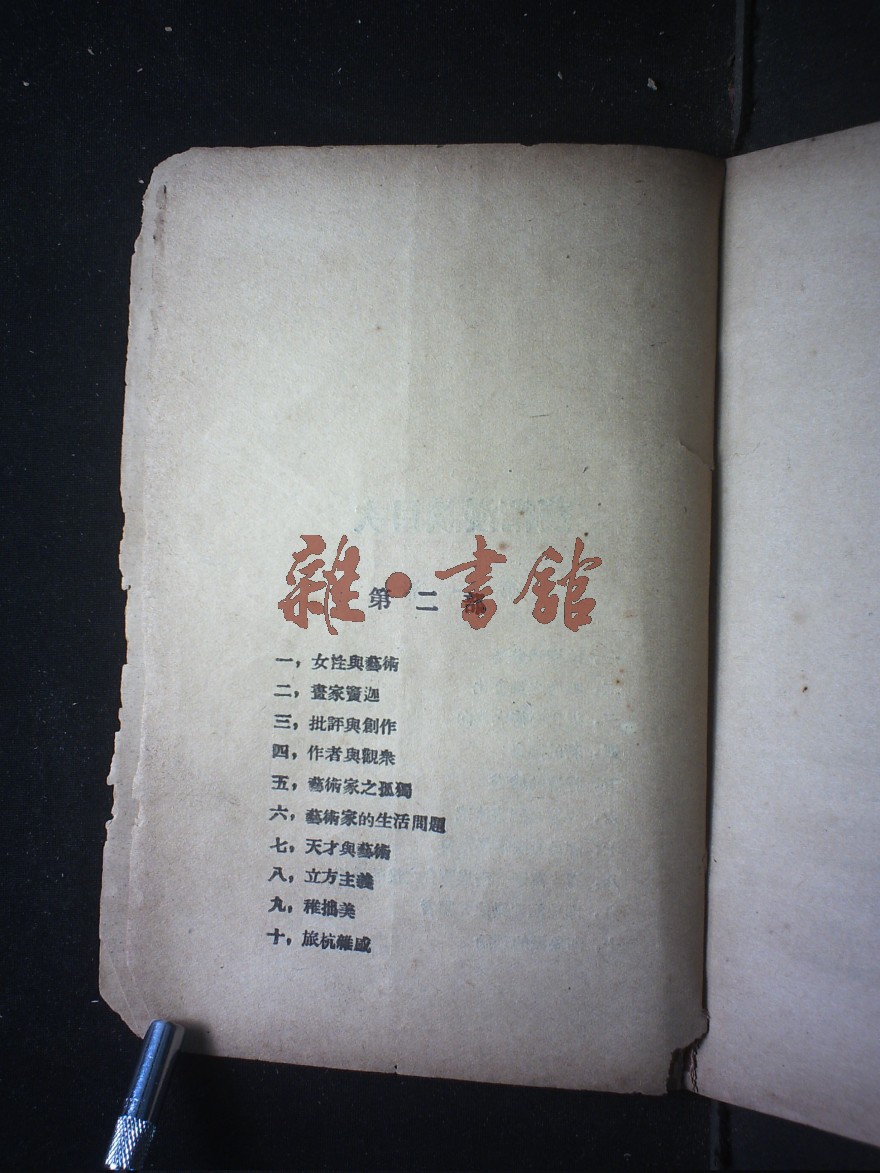 雜·書館
第二部
一，女性與藝術
二，畫家竇迦
三，批評與創作
四，作者與觀衆
五，藝術家之孤獨
六，藝術家的生活問題
七，天才與藝術
八，立方主義
九，稚拙美
十，旅杭雜感